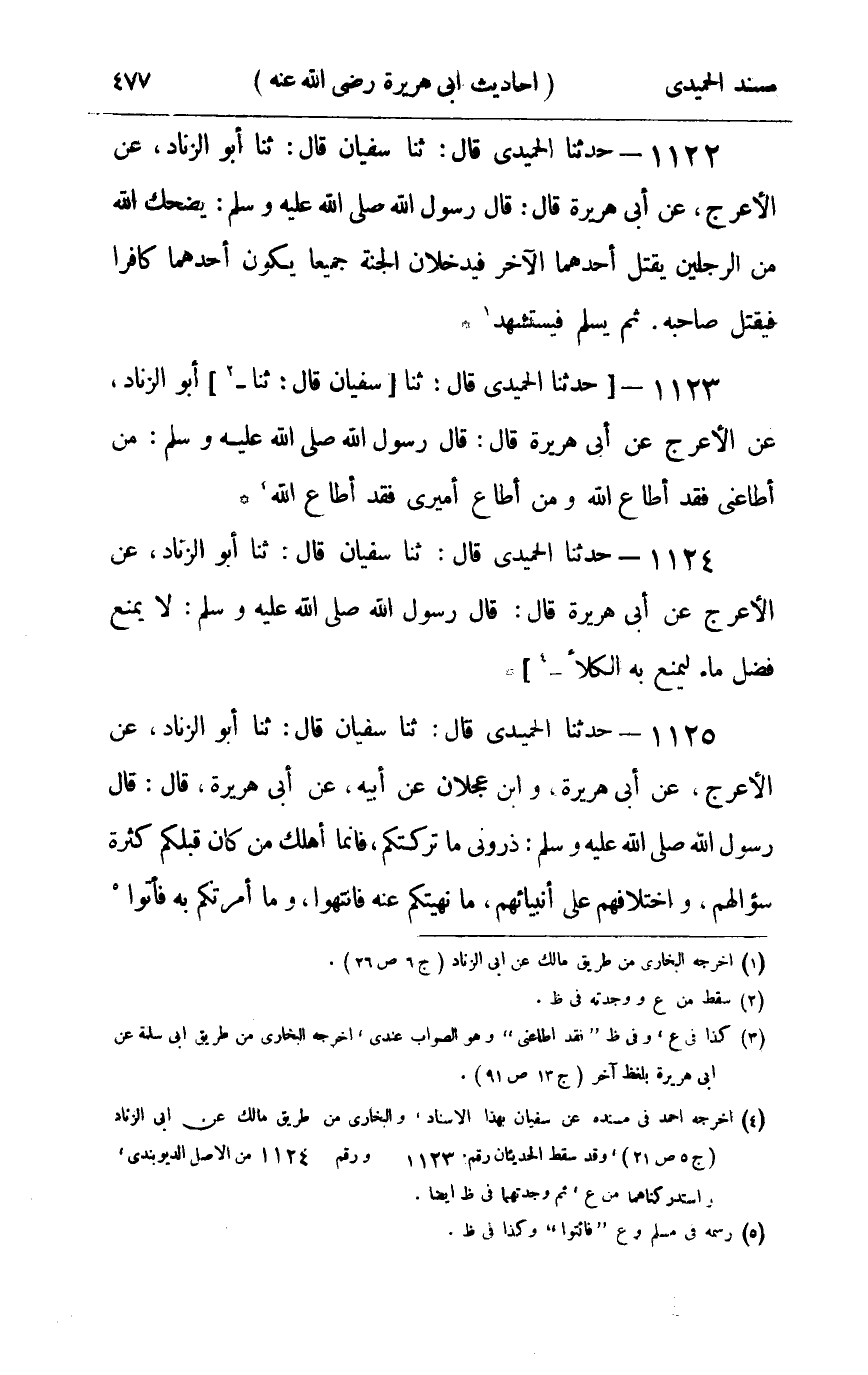 مسند الحميدى ( احاديث ابى هريرة رضى الله عنه ) ٤٧٧
١١٢٢ – حدثنا الحميدى قال : ثنا سفيان قال : ثنا أبو الزناد، عن
الأعرج، عن أبى هريرة قال : قال رسول الله صلى الله عليه و سلم : يضحك الله
من الرجلين يقتل أحدهما الآخر فيدخلان الجنة جميعا يكون أحدهما كافرا
فيقتل صاحبه . ثم يسلم فيستشهد١ *
١١٢٣ – [ حدثنا الحميدى قال : ثنا [ سفيان قال : ثنا –٢ ] أبو الزناد،
عن الأعرج عن أبى هريرة قال : قال رسول الله صلى الله عليه و سلم : من
أطاعنى فقد أطاع الله و من أطاع أميرى فقد أطاع الله، *
١١٢٤ – حدثنا الحميدى قال : ثنا سفيان قال : ثنا أبو الزناد، عن
الأعرج عن أبى هريرة قال : قال رسول الله صلى الله عليه و سلم : لا يمنع
فضل ماء ليمنع به الكلأ –٤ ] *
١١٢٥ – حدثنا الحميدى قال : ثنا سفيان قال : ثنا أبو الزناد، عن
الأعرج، عن أبى هريرة، و ابن عجلان عن أبيه، عن أبى هريرة، قال : قال
رسول الله صلى الله عليه و سلم : ذرونى ما تركتكم، فانما أهلك من كان قبلكم كثرة
سؤالهم، و اختلافهم على أنبيائهم، ما نهيتكم عنه فانتهوا، و ما أمرتكم به فأتوا٥
(١) اخرجه البخارى من طريق مالك عن ابى الزناد ( ج ٦ ص ٢٦ ) .
(٢) سقط من ع و وجدته فى ظ .
(٣) كذا فى ع ، و فى ظ ”نقد اطاعنى“ و هو الصواب عندى ، اخرجه البخارى من طريق ابى سلمة عن
ابى هريرة بلفظ آخر ( ج ١٣ ص ٩١ ) .
(٤) اخرجه احمد فى مسنده عن سفيان بهذا الاسناد ، والبخارى من طريق مالك عن ابى الزناد
( ج ٥ ص ٢١ ) ، وقد سقط الحديثان رقم: ١١٢٣ و رقم ١١٢٤ من الاصل الديوبندى ،
و استدركناهما من ع ، ثم وجدتهما فى ظ ايضا .
(٥) رسمه فى مسلم و ع ”فائتوا“ وكذا فى ظ .